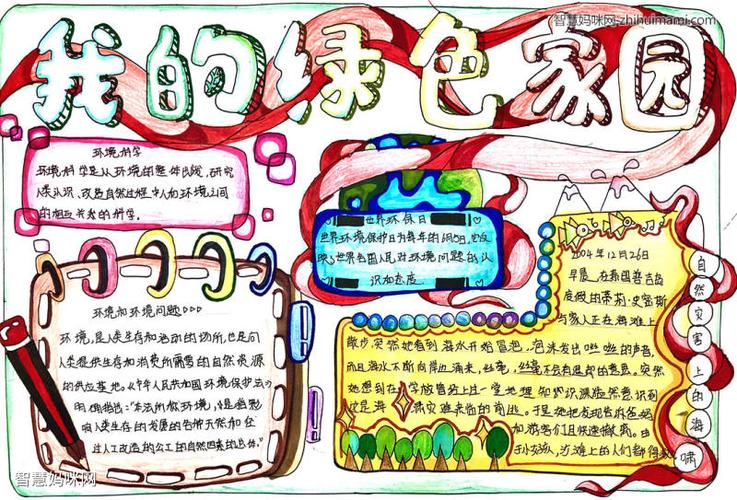 智慧妈咪网-zhihuimami.com
我的绿色家园
环境科学
环境科学是从环境的整体出发,研究
人类认识、改造自然过程中人和环境之间
的相互关系的科学。
世界环保日
世界环境保护日为每年的6月5日,它反
映了世界各国人民对环境问题的认
识和态度
环境和环境问题
环境,是人类生存和活动的场所,也是向
人类提供生存和消费所需要的自然资源
的供应基地。《中华人民共和国环境保护法》
明确指出:"本法所称环境,是指影
响人类生存的发展的各种天然和经
过人工改造的自然因素的总体。"
2004年12月26日
早晨,在泰国普吉岛
度假的蒂莉·史密斯
与家人正在海滩上
散步,突然她看到海水开始冒泡,泡沫发出咝咝的声音,
而且海水不断向岸边涌来,
突然
她想到在学放上过一堂地理
意识到
这是海
灾难来临的前兆。于是她把发现告诉爸妈
和游客们且快速撤离。由
于小女孩,沙滩上的人们都得救
自然灾害上的海啸
智慧妈咪网